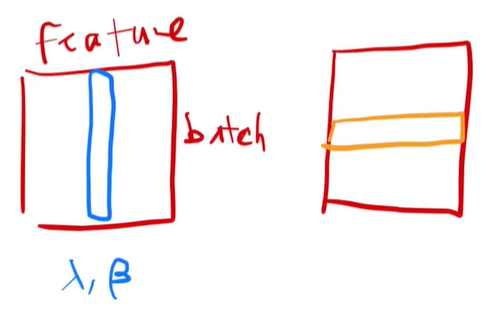 feature
batch
λ, β